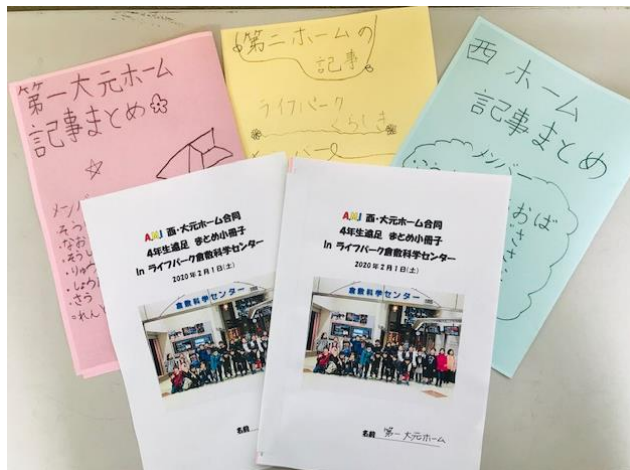 第一大元ホーム
記事まとめ
メンバー
・そう
・なお
・そうし
・りゅう
・しょう
・さう
第二ホームの
記事
ライフパーク
くらしき
西ホーム
記事まとめ
メンバー
おば
AMJ 西・大元ホーム合同
4年生遠足 まとめ小冊子
In ライフパーク倉敷科学センター
2020年2月1日(土)
倉敷科学センター
名前
AMJ 西・大元ホーム合同
4年生遠足 まとめ小冊子
In ライフパーク倉敷科学センター
2020年2月1日(土)
倉敷科学センター
名前 第一大元ホーム